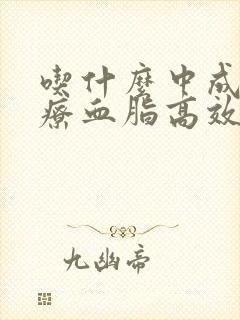 喫什麼中成
療血脂高效
九幽帝